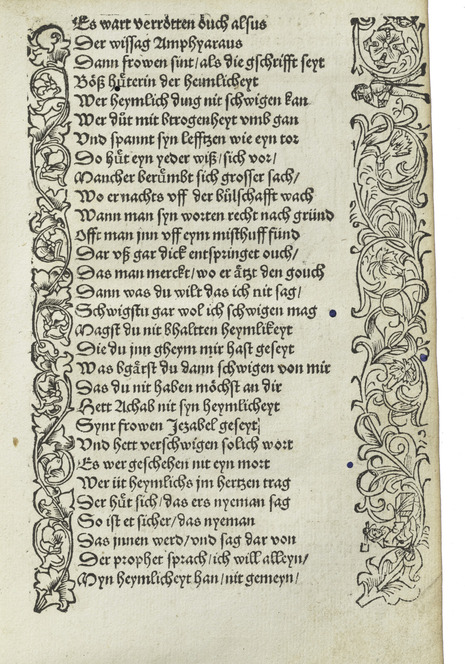 Es wart verrötten ouch alsus
Der wissag Amphyaraus
Dann frowen sint/als die gschrifft seyt
Böß hu̎terin der heimlicheyt
Wer heymlich dung nit schwigen kan
Wer du̎t mit btrogenheyt vmb gan
Vnd spannt syn lefftzen wie eyn tor
Do hu̎t eyn yeder wiß/sich vor/
Mancher beru̎mbt sich grosser sach/
Wo er nachts vff der bu̎lschafft wach
Wann man syn worten recht nach gründ
Offt man jnn vff eym misthuff fünd
Dar vß gar dick entspringet ouch/
Das man merckt/wo er åtzt den gouch
Dann was du wilt das ich nit sag/
Schwigstu gar wol ich schwigen mag
Magst du nit bhaltten heymlikeyt
Die du jnn gheym mir hast geseyt
Was bgårst du dann schwigen von mir
Das du nit haben möchst an dir
Hett Achab nit syn heymlicheyt
Synr frowen Jezabel geseyt
Vnd hett verschwigen solich wort
Es wer geschehen nit eyn mort
Wer üt heymlichs jm hertzen trag
Der hu̎t sich/das ers nyeman sag
So ist er sicher/das nyeman
Das jnnen werd/vnd sag dar von
Der prophet sprach/ich will alleyn/
Myn heymlicheyt han/nit gemeyn/